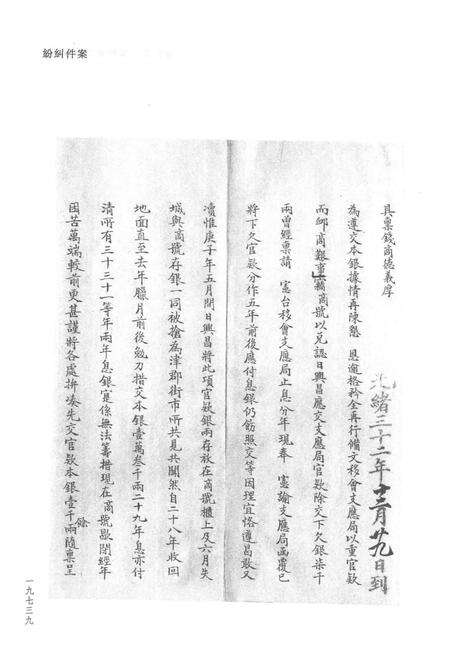 紛糾件案
具稟錢商德義厚
為遵交本銀據情再陳懇 恩逾格矜全再行備文移會支應局以重官款
而卹商艱事竊商號以兌認日興昌應交支應局官款除交下欠銀柒千
兩曾經稟請 憲台移會支應局止息分年現奉 憲諭支應局函覆已
將下欠官款分作五年前後應付息銀仍飭照交等因理宜恪遵曷敢又
瀆惟庚子年五月間日興昌將此項官款銀兩存放在商號櫃上及六月失
城與商號存銀一同被搶為津郡街市所共見共聞然自二十八年收回
地面直至去年臘月前後勉力措交本銀壹萬叁千兩二十九年息亦付
清所有三十三十一等年兩年息銀寔係無法籌措現在商號歇閉經年
困苦萬端較前更甚謹將各處拚湊先交官款本銀壹千兩隨稟呈
餘
光緒三十二年十二月廿九日到
一九七三九